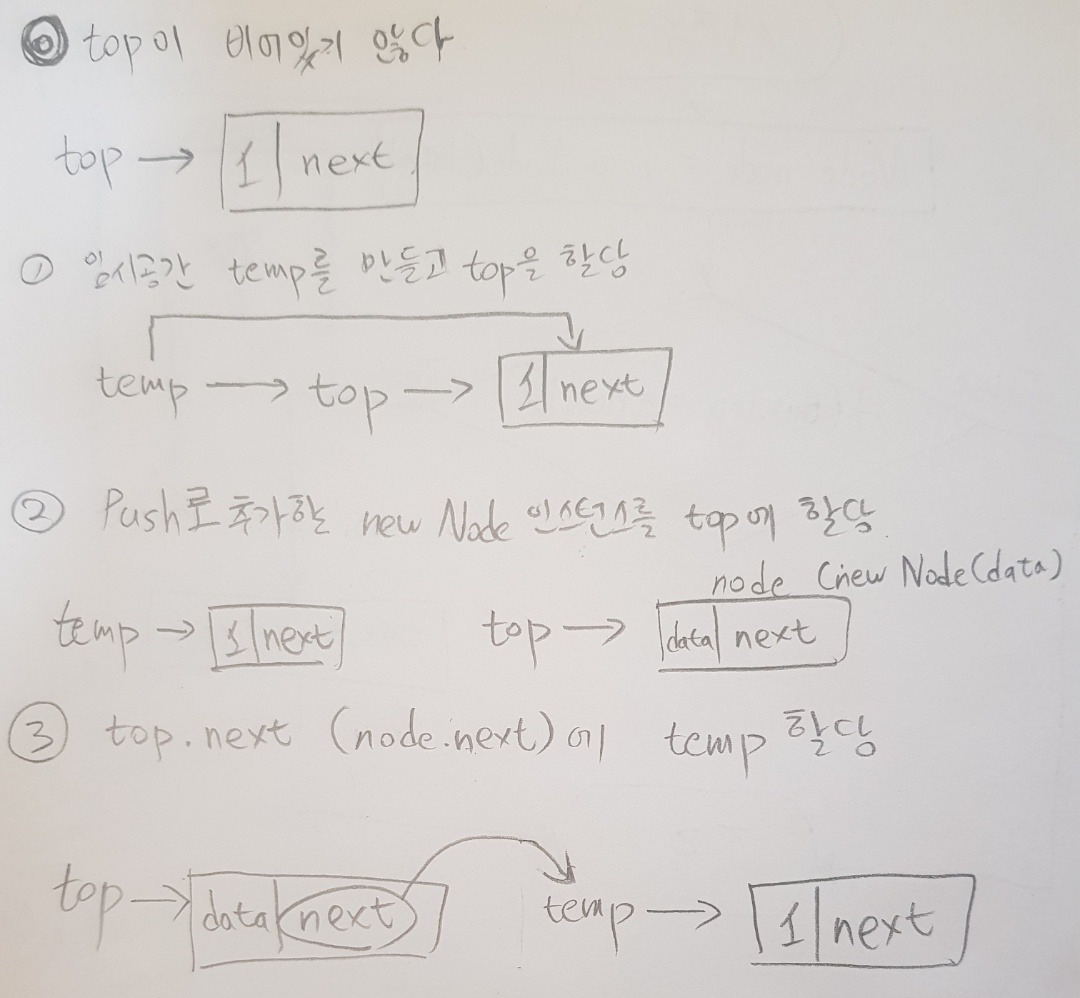 ◎ top이 비어있지 않다
top → 1 | next
① 임시공간 temp를 만들고 top을 할당
temp → top → 1 | next
② Push로 추가할 new Node 인스턴스를 top에 할당
node (new Node(data)
temp → 1 | next top → data | next
③ top.next (node.next)에 temp 할당
top → data | next temp → 1 | next